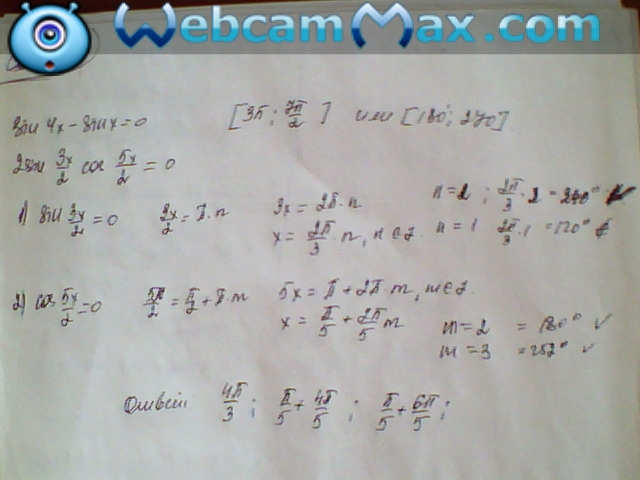 WebcamMax.com
sin 4x - sin x = 0 [3π; 7π/2] или [180°; 270]
2sin 3x/2 cos 5x/2 = 0
1) sin 3x/2 = 0 3x/2 = π·n 3x = 2π·n n=2; 2π/3·2 = 240° ✓
x = 2π/3·n, n∈z. n=1 2π/3·1 = 120°
2) cos 5x/2 = 0 5x/2 = π/2 + π·m 5x = π + 2πm, m∈z.
x = π/5 + 2π/5 m m=2 = 180° ✓
m=3 = 252° ✓
Ответ 4π/3; π/5 + 4π/5; π/5 + 6π/5;